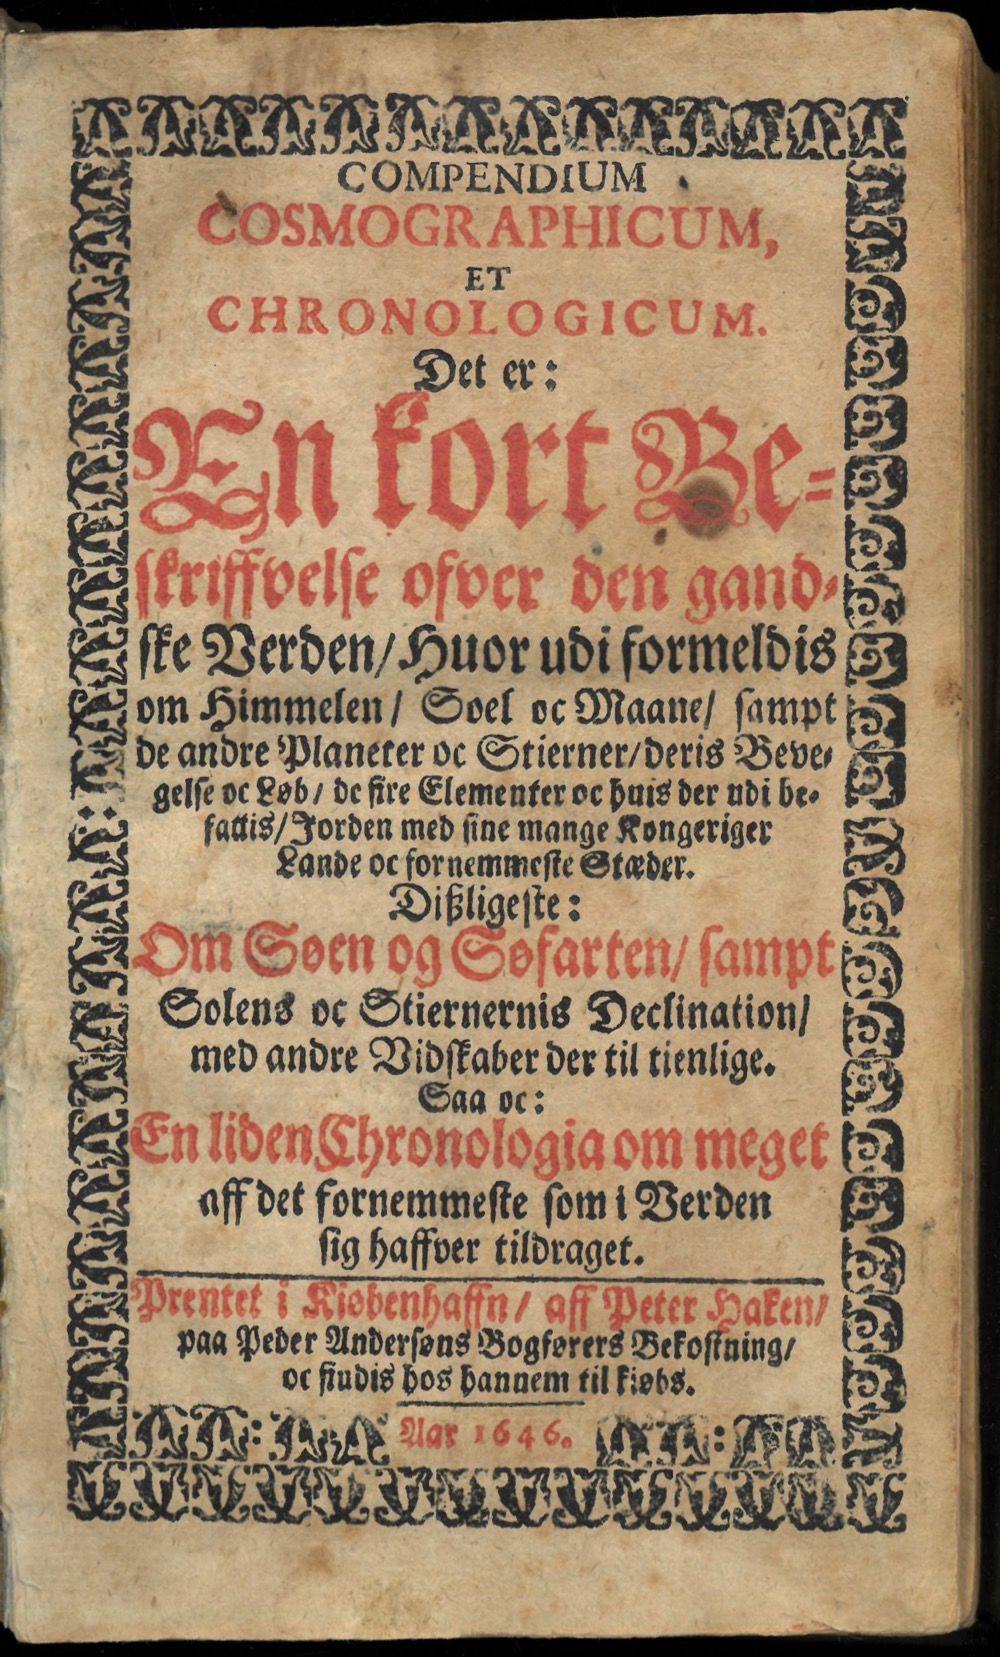 COMPENDIUM
COSMOGRAPHICUM,
ET
CHRONOLOGICUM.
Det er:
En kort Be-
skriffvelse ofver den gand-
ske Verden/ Huor udi formeldis
om Himmelen/ Soel oc Maane/ sampt
de andre Planeter oc Stierner/ deris Beve-
gelse oc Løb/ de fire Elementer oc huis der udi be-
fattis/ Jorden med sine mange Kongeriger
Lande oc fornemmeste Stæder.
Dißligeste:
Om Søen og Søfarten/ sampt
Solens oc Stiernernis Declination/
med andre Vidskaber der til tienlige.
Saa oc:
En liden Chronologia om meget
aff det fornemmeste som i Verden
sig haffver tildraget.
Prentet i Kiøbenhaffn/ aff Peter Haken/
paa Peder Andersøns Bogførers Bekostning/
oc findis hos hannem til kiøbs.
Aar 1646.